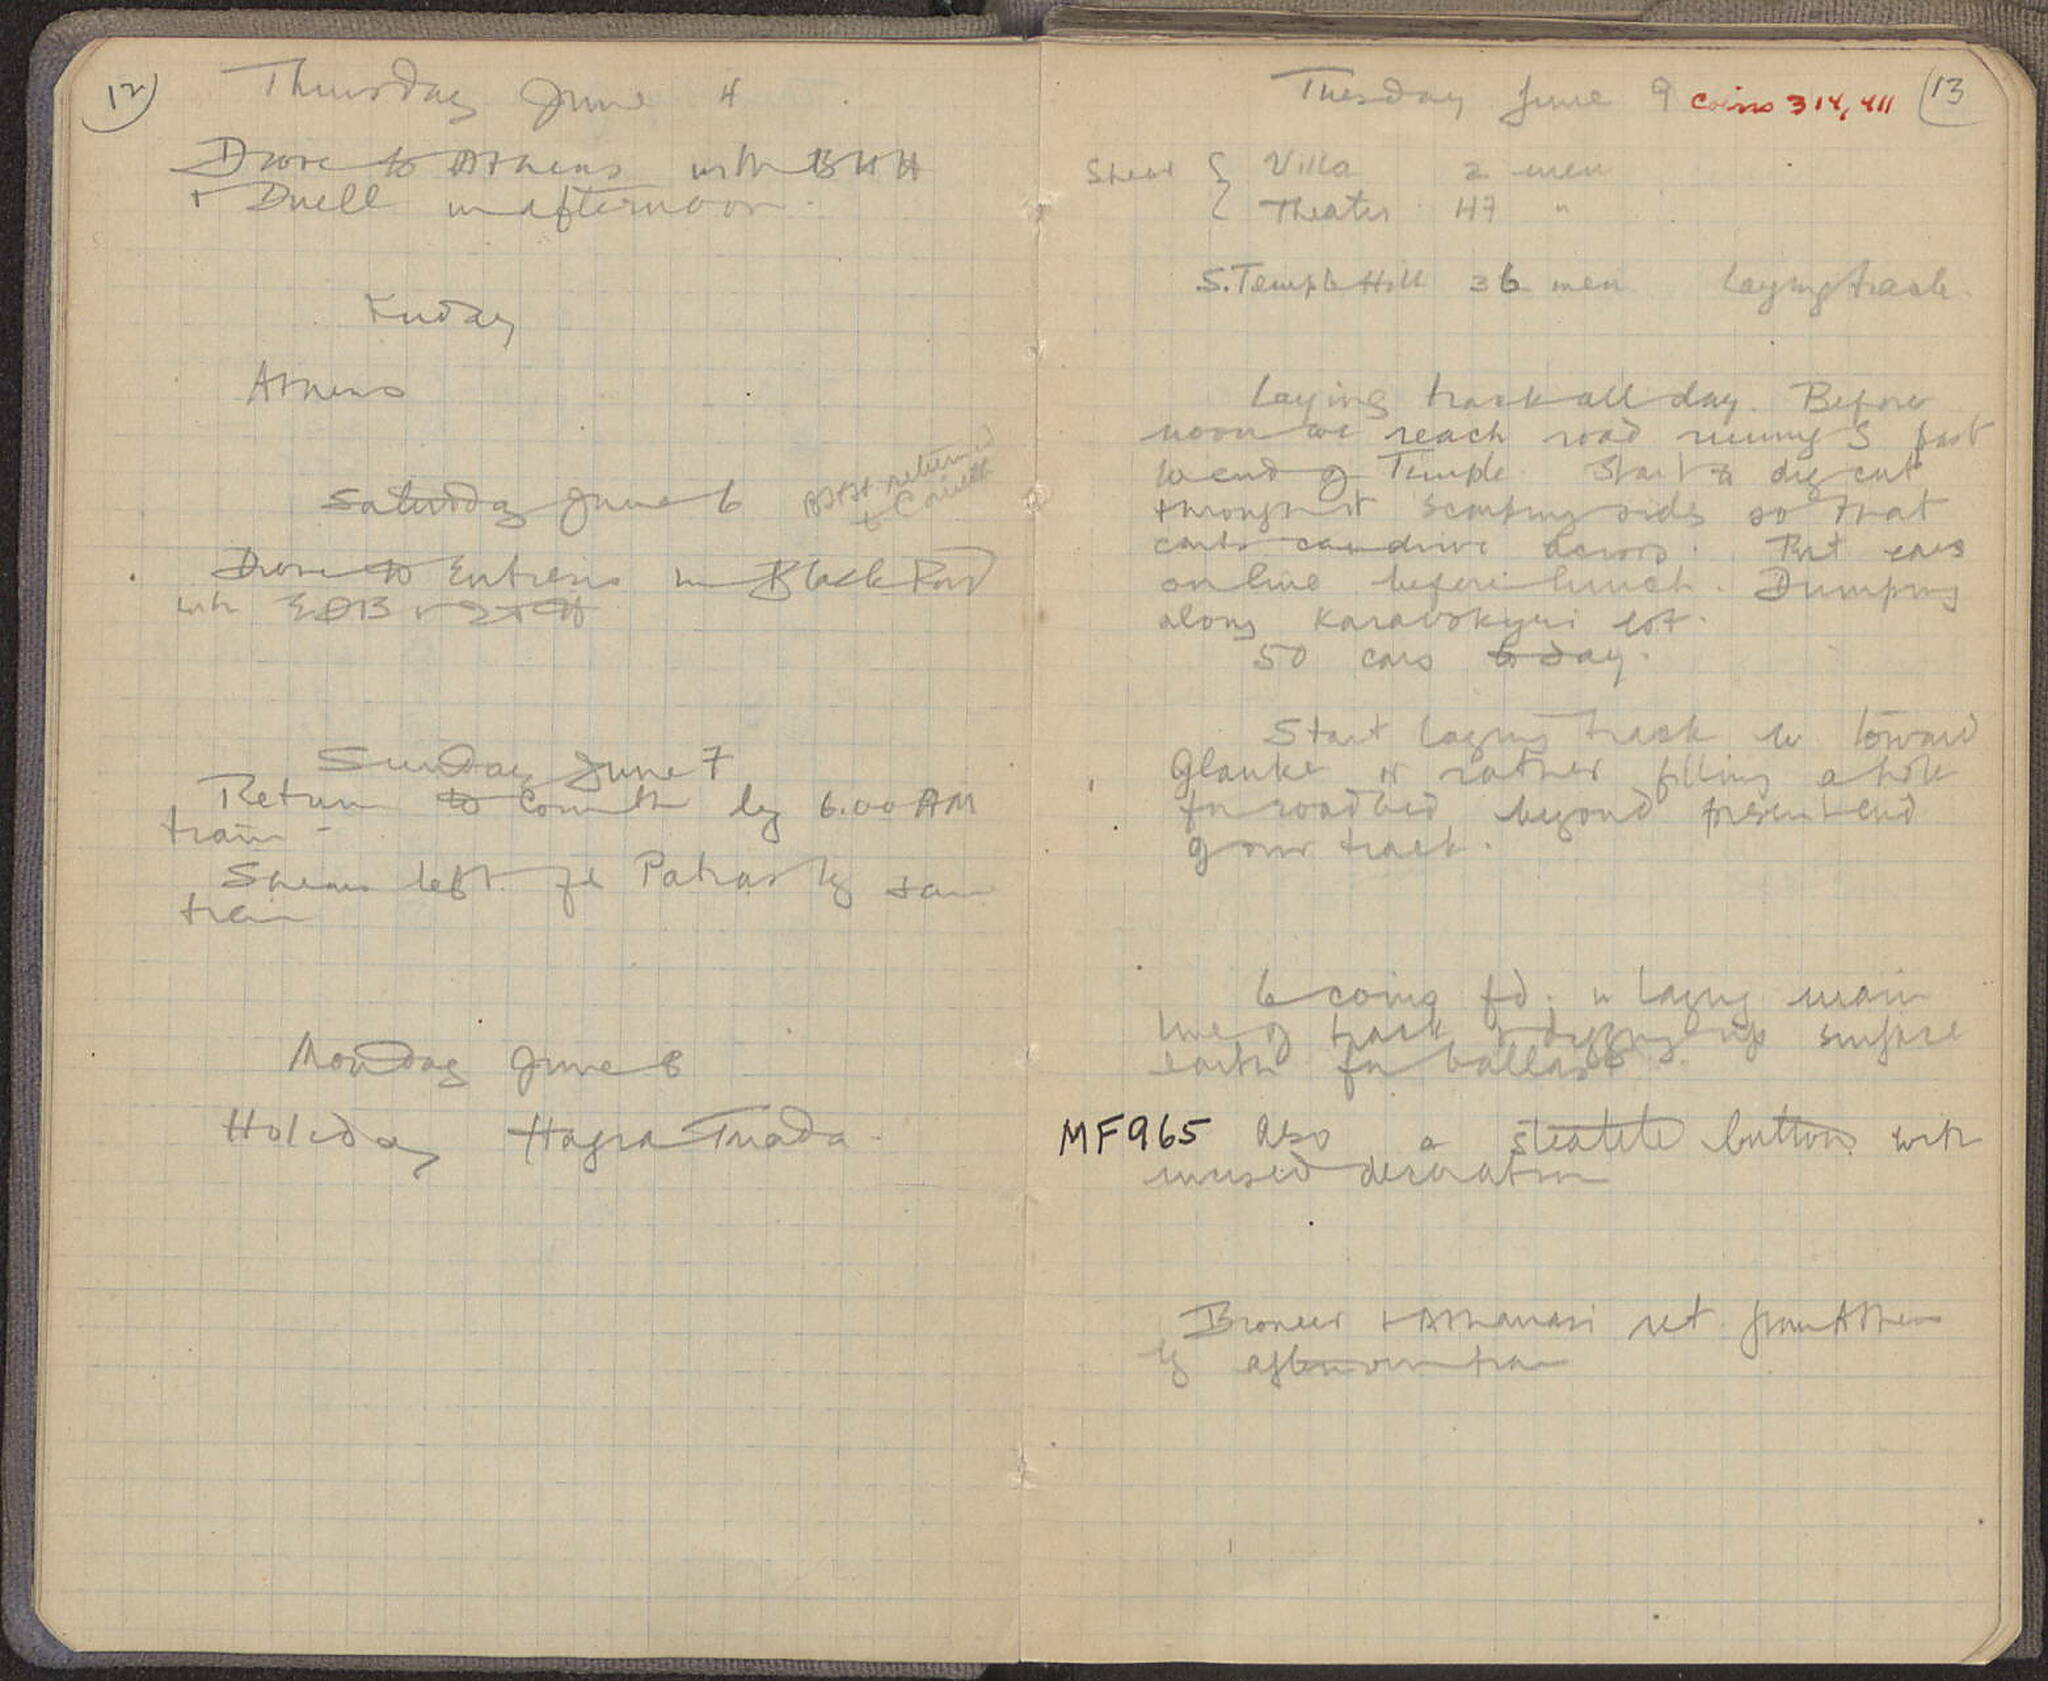 12
Thursday June 4
Drove to Athens with BHH
+ Duell in afternoon.
Friday
Athens
Saturday June 6
BHH returned
to Corinth
Drove to Eutresis in Black Ford
with
Sunday June 7
Return to Corinth by 6.00 AM
train -
Shears left for Patras by same
train
Monday June 8
Holiday Hagia Triada
Tuesday June 9 coins 314, 411 13
Shear { Villa 2 men
{ Theater 47 "
S. Temple Hill 36 men Laying track.
Laying track all day. Before
noon we reach road running S past
W end of Temple. Start to dig cut
through it scarping sides so that
carts can drive across. Put cars
on line before lunch. Dumping
along Karavokyri lot.
50 cars to day.
Start laying track W toward
Glauke or rather filling a hole
for roadbed beyond present end
of our track.
6 coins fd. in laying main
line of track & digging up surface
earth for ballast.
MF965 Also a steatite button with
incised decoration
Broneer + Athanasi ret. from Athens
by afternoon train